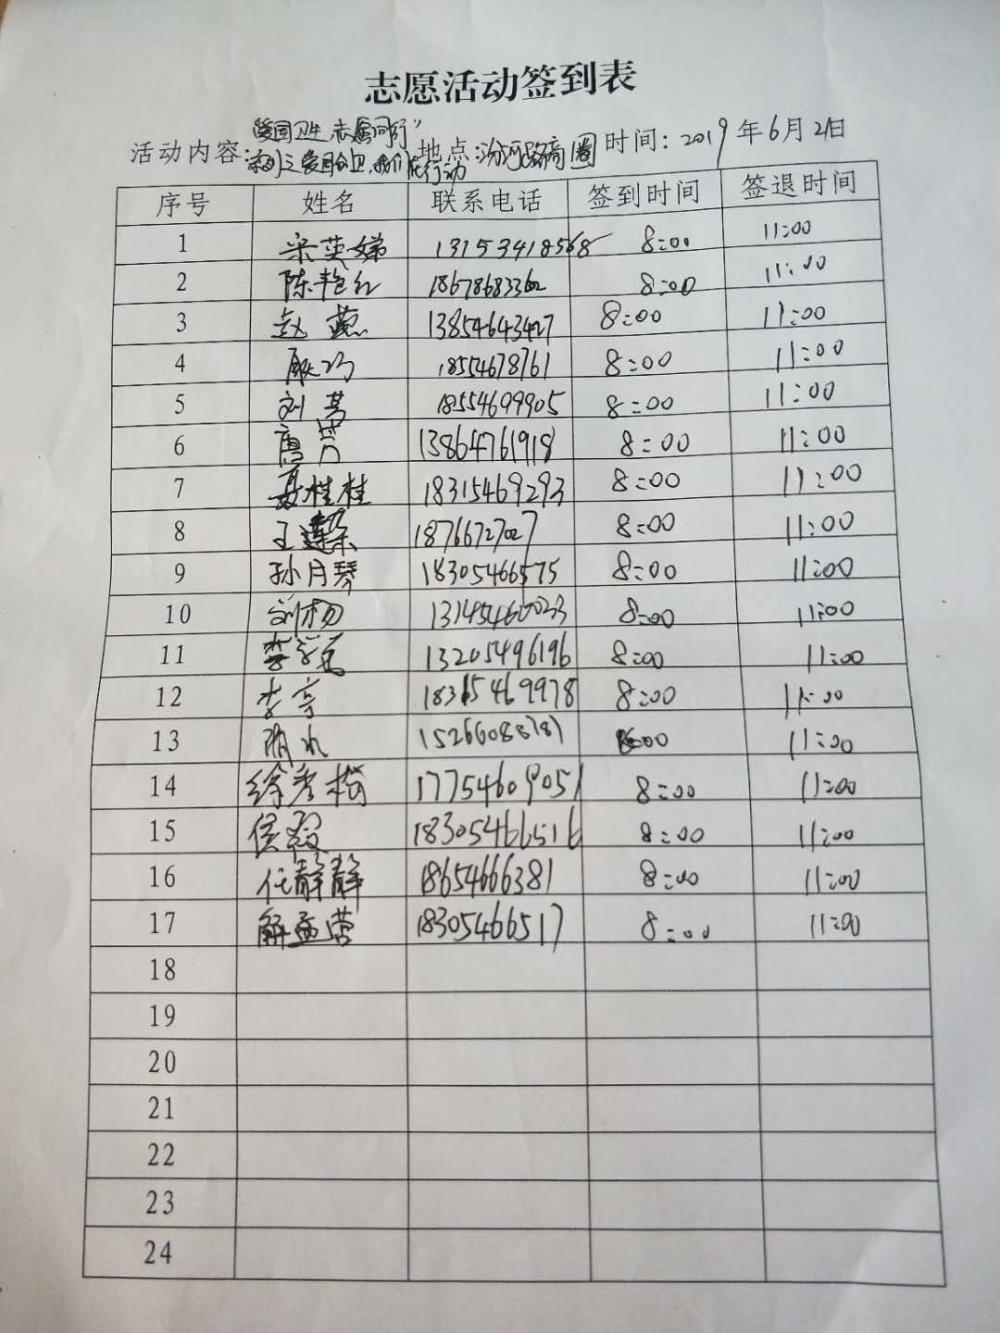 志愿活动签到表
活动内容:"爱国卫生,志愿同行"系列之爱国创卫,我们在行动 地点:汾河路商圈 时间: 2019年6月2日
序号 姓名 联系电话 签到时间 签退时间
1 宋英娣 13153418568 8:00 11:00
2 陈艳红 18678683362 8:00 11:00
3 赵燕 13854643427 8:00 11:00
4 18554678761 8:00 11:00
5 刘芳 18554699905 8:00 11:00
6 唐芳 13864761918 8:00 11:00
7 聂桂桂 18315469293 8:00 11:00
8 王莲荣 18766727027 8:00 11:00
9 孙月琴 18305466575 8:00 11:00
10 刘杨 8:00 11:00
11 李 13205496196 8:00 11:00
12 李亭 18315469978 8:00 11:00
13 8:00 11:00
14 徐秀梅 17754609051 8:00 11:00
15 侯毅 18305466516 8:00 11:00
16 任静静 18654666381 8:00 11:00
17 解孟营 18305466517 8:00 11:00
18
19
20
21
22
23
24